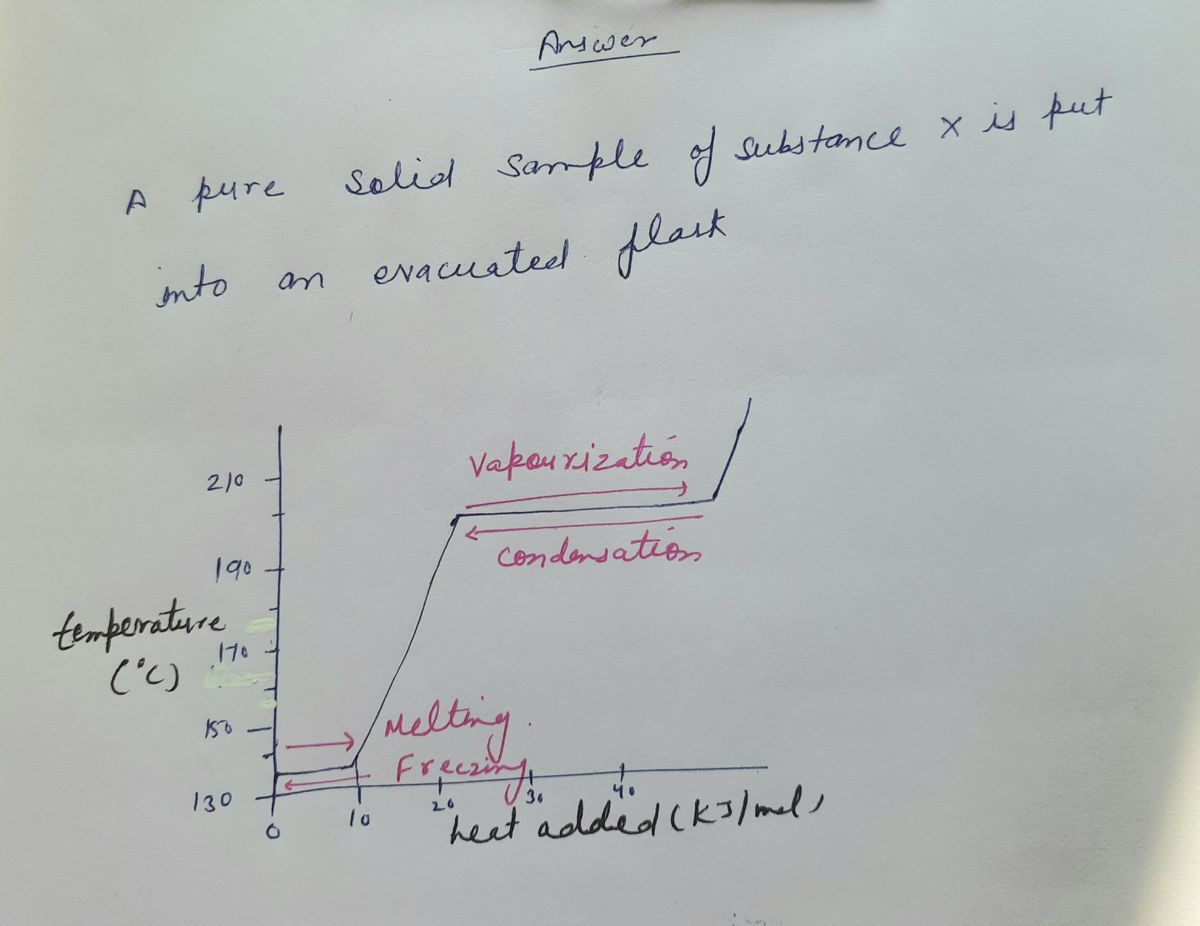 Answer
A pure solid sample of substance X is put
into an evacuated flask
210
Vapourization
190
condensation
temperature
(°C)
170
150
Melting.
Freezing
130
0
10
20
30
40
heat added (KJ/mol)